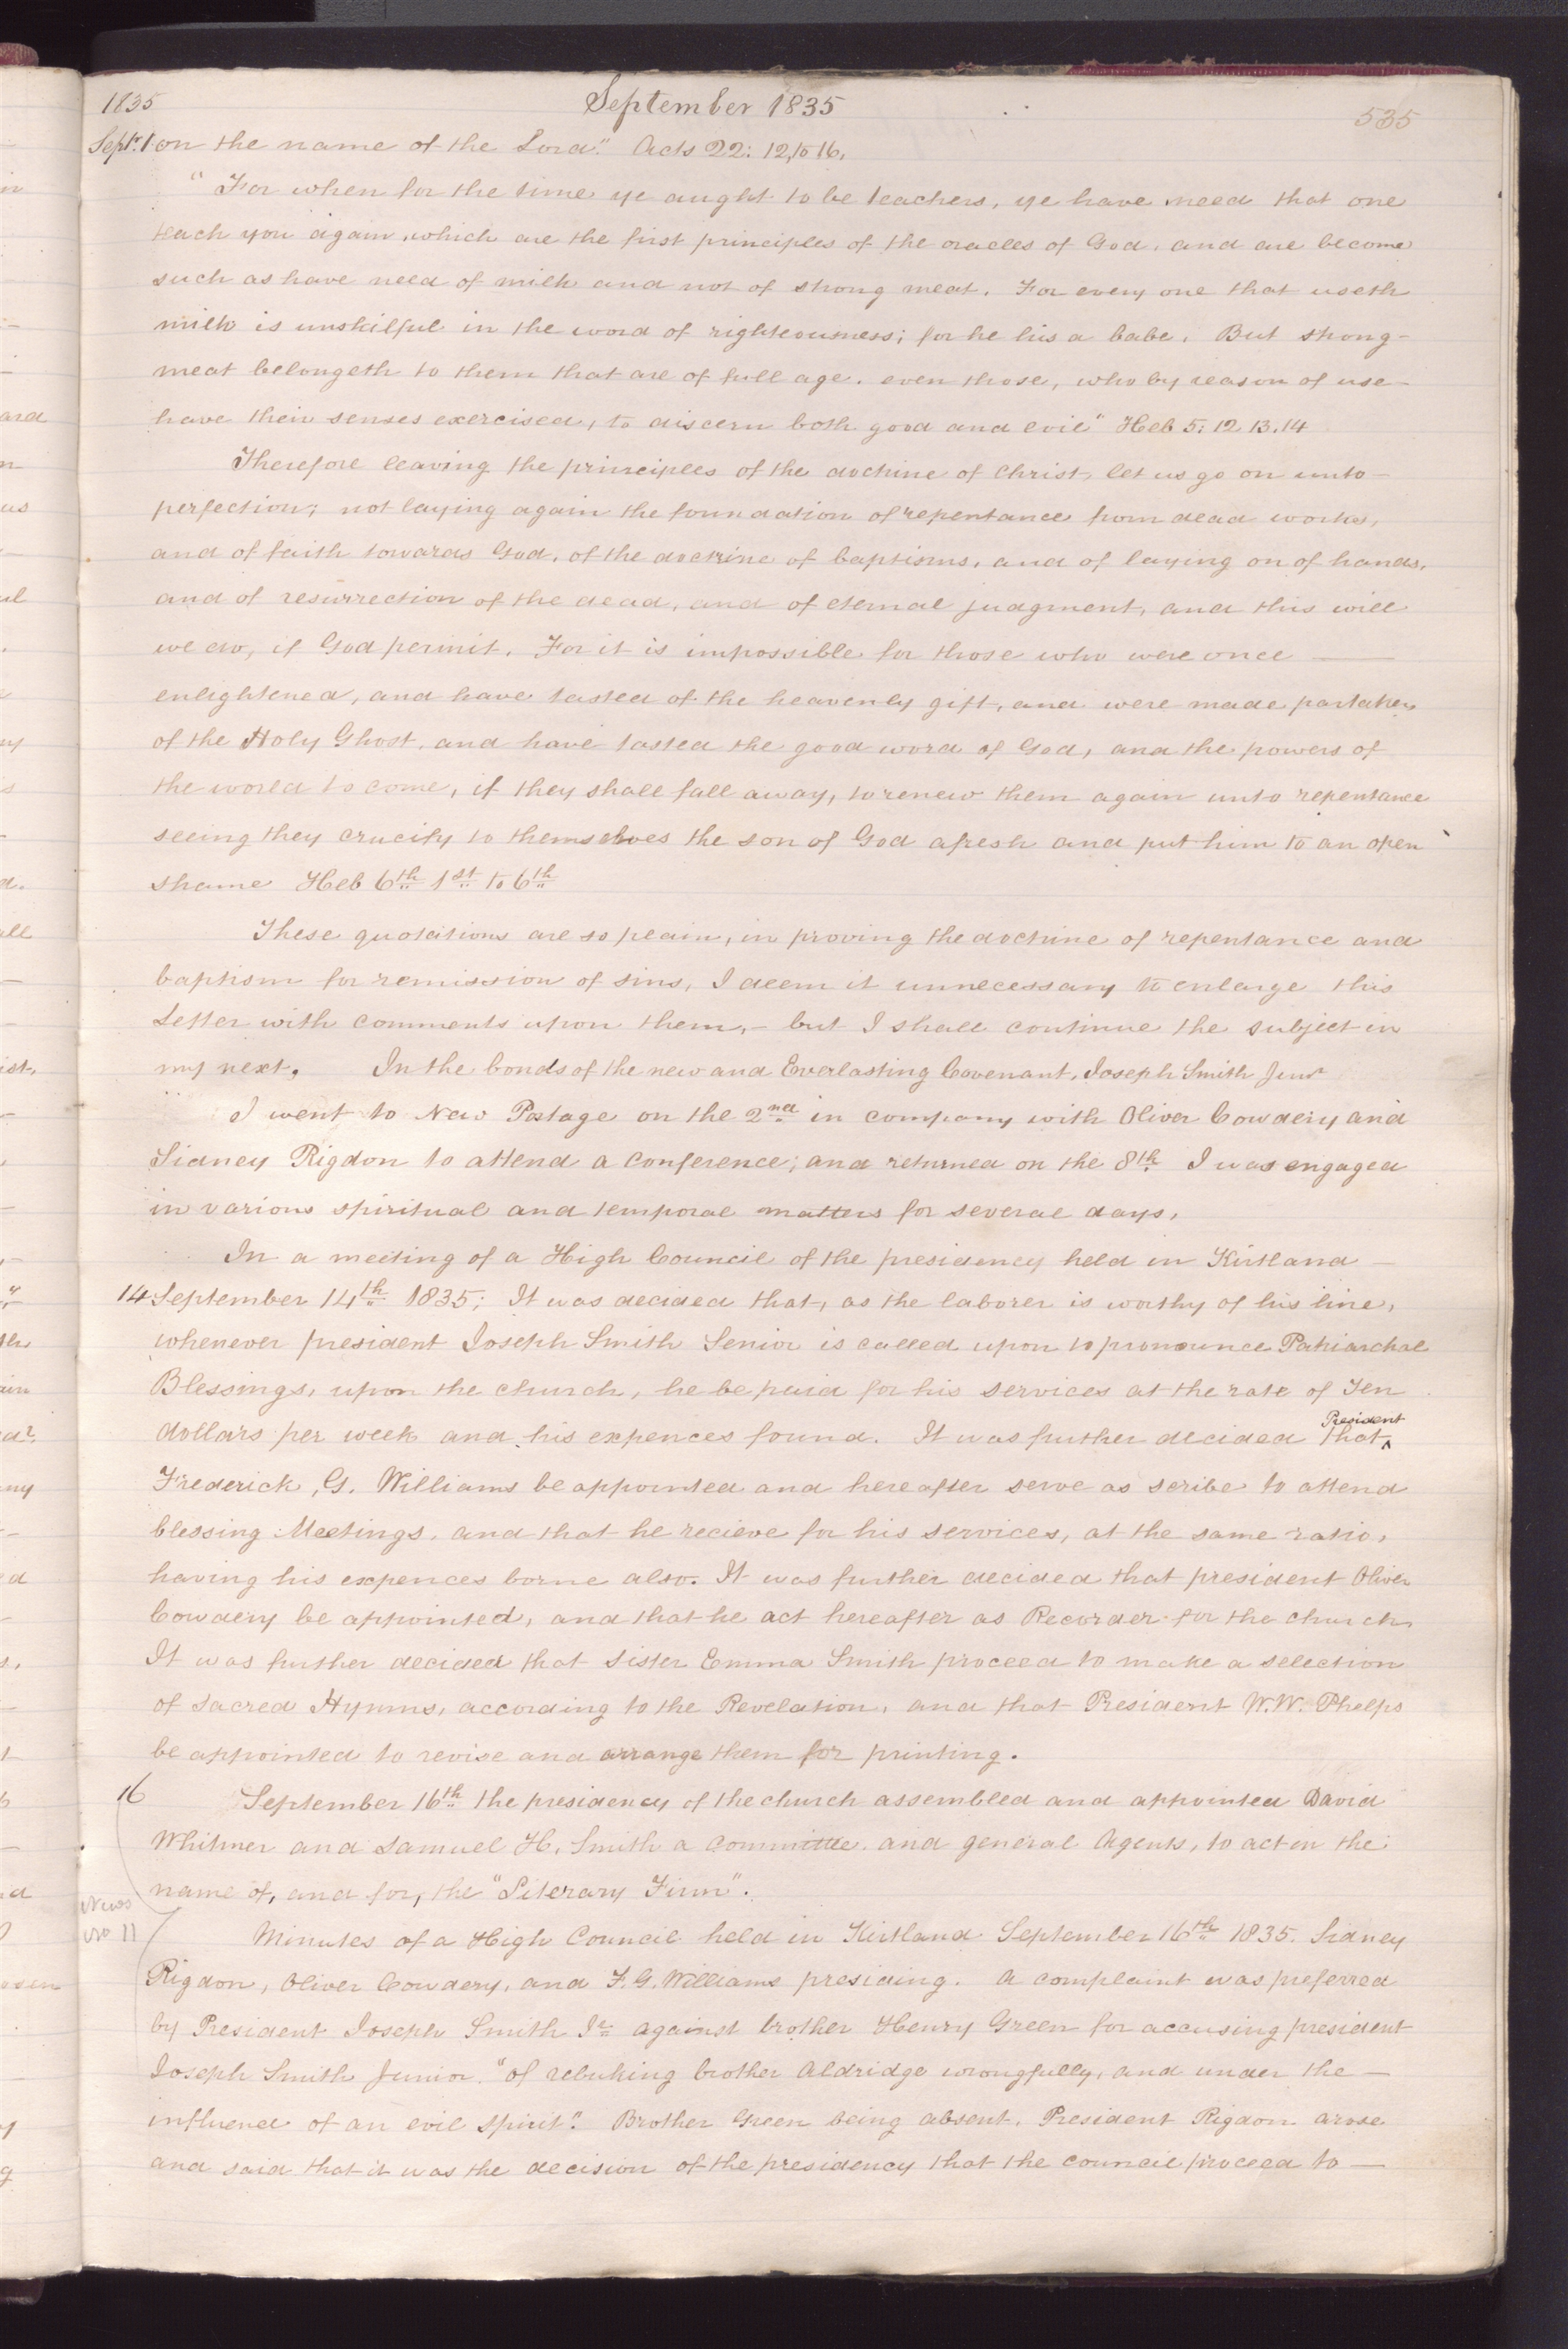 1835 September 1835 535
Sept. 1 on the name of the Lord." Acts 22: 12, to 16.
"For when for the time ye aught to be teachers, ye have need that one
teach you again, which are the first principles of the oracles of God, and are become
such as have need of milk and not of strong meat. For every one that useth
milk is unskilful in the word of righteousness; for he his a babe. But strong-
meat belongeth to them that are of full age. even those, who by reason of use-
have their senses exercised, to discern both good and evil" Heb 5: 12 13. 14
Therefore leaving the principles of the doctrine of Christ, let us go on unto-
perfection; not laying again the foundation of repentance from dead works,
and of faith towards God, of the doctrine of baptisms, and of laying on of hands,
and of resurrection of the dead, and of eternal judgment, and this will
we do, if God permit. For it is impossible for those who were once —
enlightened, and have tasted of the heavenly gift, and were made partakers
of the Holy Ghost, and have tasted the good word of God, and the powers of
the world to come, if they shall fall away, to renew them again unto repentance
seeing they crucify to themselves the son of God afresh and put him to an open
shame Heb 6th 1st to 6th
These quotations are so plain, in proving the doctrine of repentance and
baptism for remission of sins, I deem it unnecessary to enlarge this
Letter with comments upon them,- but I shall continue the subject in
my next. In the bonds of the new and Everlasting Covenant, Joseph Smith Junr
I went to New Portage on the 2nd in company with Oliver Cowdery and
Sidney Rigdon to attend a conference; and returned on the 8th I was engaged
in various spiritual and temporal matters for several days,
In a meeting of a High Council of the presidency held in Kirtland —
14 September 14th 1835; It was decided that, as the laborer is worthy of his hire,
whenever president Joseph Smith Senior is called upon to pronounce Patriarchal
Blessings, upon the church, he be paid for his services at the rate of Ten
President
dollars per week and his expences found. It was further decided that ^
Frederick, G. Williams be appointed and hereafter serve as scribe to attend
blessing Meetings, and that he recieve for his services, at the same ratio,
having his expences borne also. It was further decided that president Oliver
Cowdery be appointed, and that he act hereafter as Recorder for the church
It was further decided that sister Emma Smith proceed to make a selection
of sacred Hymns, according to the Revelation, and that President W. W. Phelps
be appointed to revise and arrange them for printing.
16 September 16th the presidency of the church assembled and appointed David
Whitmer and Samuel H. Smith a committee. and general Agents, to act in the
name of, and for, the "Literary Firm".
News
No 11 Minutes of a High Council held in Kirtland September 16th 1835. Sidney
Rigdon, Oliver Cowdery, and F. G. Williams presiding. A complaint was preferred
by President Joseph Smith Jr against brother Henry Green for accusing president
Joseph Smith Junior "of rebuking brother Aldridge wrongfully, and under the —
influence of an evil spirit." Brother Green being absent, President Rigdon arose
and said that it was the decision of the presidency that the council proceed to —